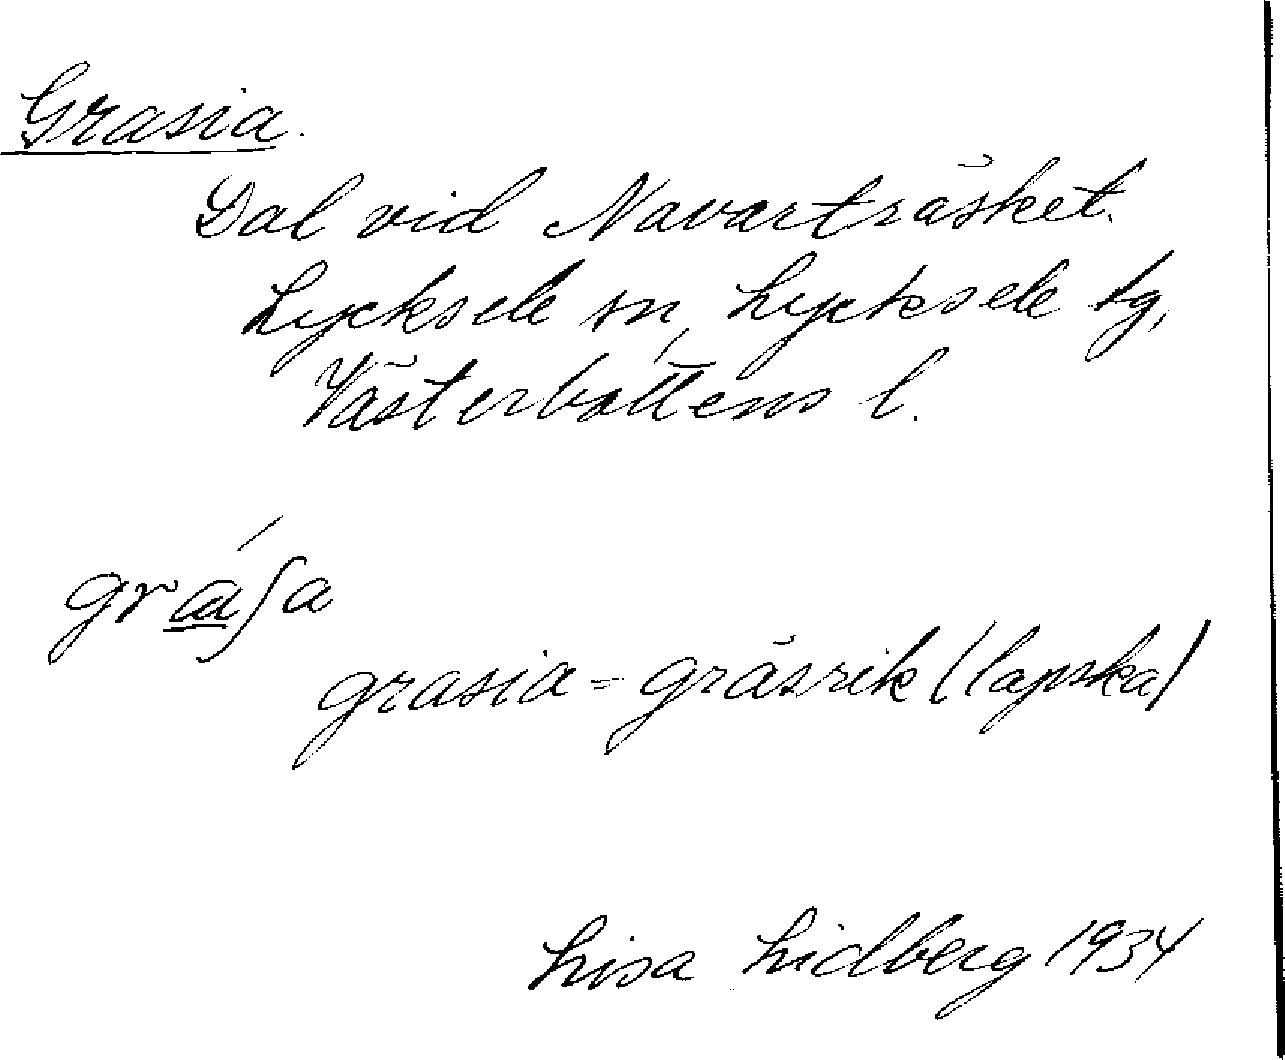 Grasia.
Dal vid Navarträsket.
Lycksele sn, Lycksele tg,
Västerbottens l.
gráʃa
grasia = gräsrik (lapska)
Lisa Lidberg 1934